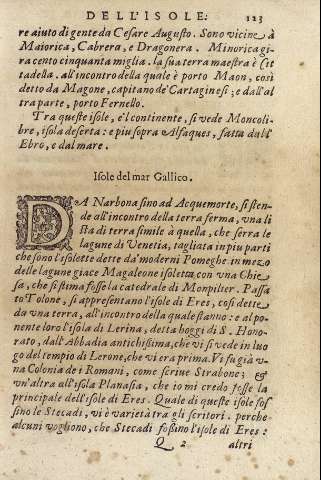 DELL'ISOLE: 123
re aiuto di gente da Cesare Augusto. Sono vicine à
Maiorica, Cabrera, e Dragonera. Minorica gi
ra cento cinquanta miglia. la sua terra maestra è Cit
tadella. all'incontro della quale è porto Maon, cosi
detto da Magone, capitano de' Cartaginesi; e dall'al
tra parte, porto Fernello.
Tra queste isole, e'l continente, si vede Moncoli
bre, isola deserta: e piu sopra Alfaques, fatta dall'
Ebro, e dal mare.
Isole del mar Gallico.
DA Narbona sino ad Acquemorte, si sten-
de all'incontro della terra ferma, una li
sta di terra simile à quella, che serra le
lagune di Venetia, tagliata in piu parti
che sono l'isolette dette da' moderni Pomeghe in mezo
delle lagune giace Magaleone isoletta con una Chie
sa, che si stima fosse la catedrale di Monpilier. Passa
to Tolone, si appresentano l'isole di Eres, cosi dette
da una terra, all'incontro della quale stanno: e al po
nente loro l'isola di Lerina, detta hoggi di S. Hono-
rato, dall'Abbadia antichissima, che vi si vede in luo
go del tempio di Lerone, che vi era prima. Vi fu già u
na Colonia de i Romani, come scriue Strabone; &
un'altra all'isola Planasia, che io mi credo fosse la
principale dell'isole di Eres. Quale di queste isole fos
sino le Stecadi, vi è varietà tra gli scritori. perche
alcuni vogliono, che Stecadi fossino l'isole di Eres:
Q 2 altri